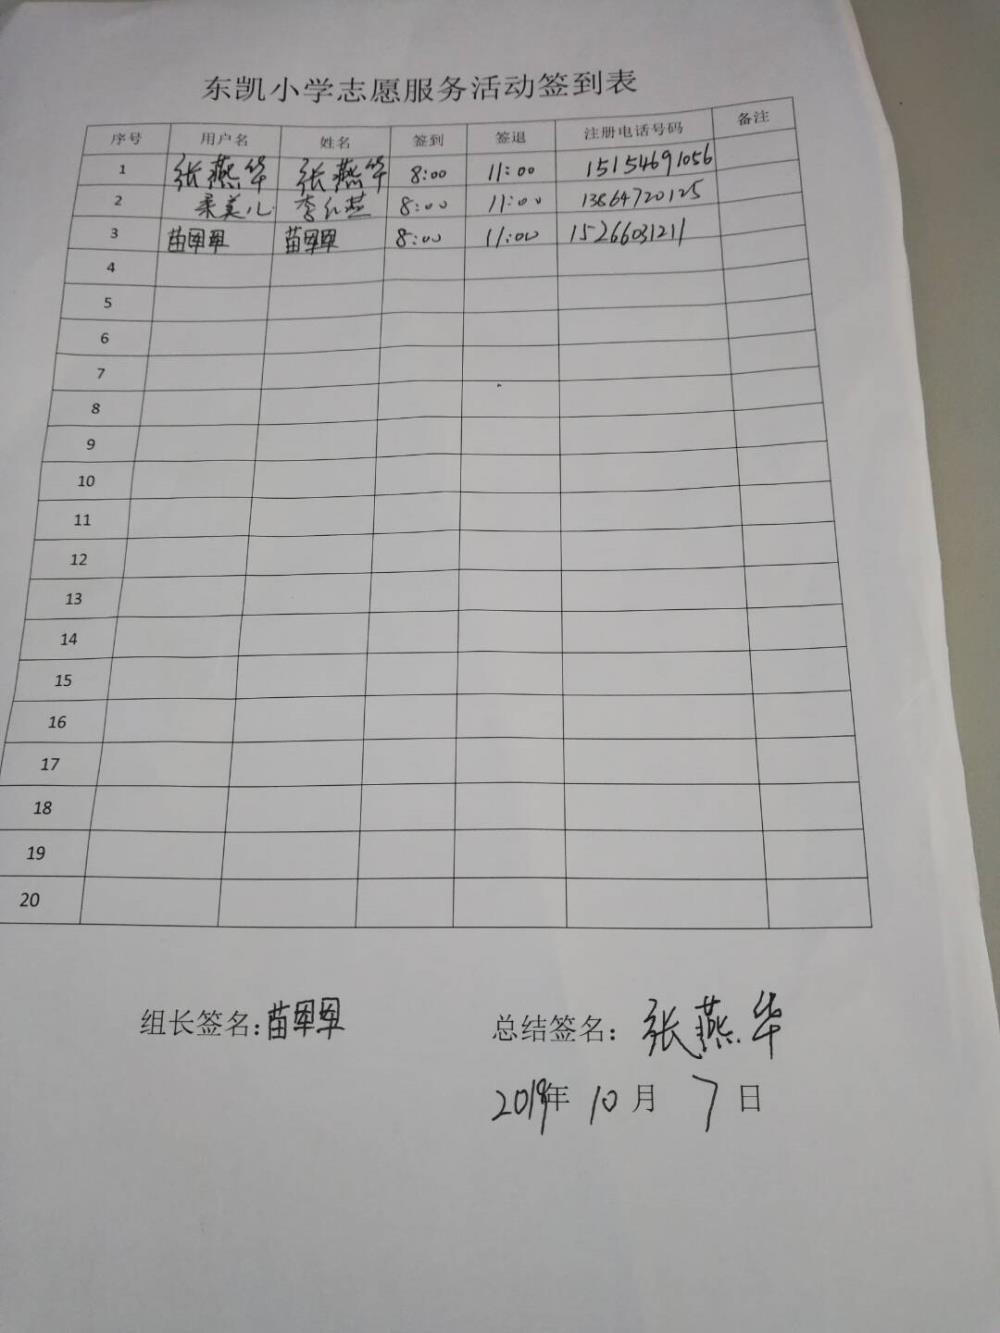 东凯小学志愿服务活动签到表
序号 用户名 姓名 签到 签退 注册电话号码 备注
1 张燕华 张燕华 8:00 11:00 15154691056
2 柔美儿 李红燕 8:00 11:00 13864720125
3 苗 苗 8:00 11:00 15266031211
4
5
6
7
8
9
10
11
12
13
14
15
16
17
18
19
20
组长签名:苗
总结签名:张燕华
2019年 10 月 7 日